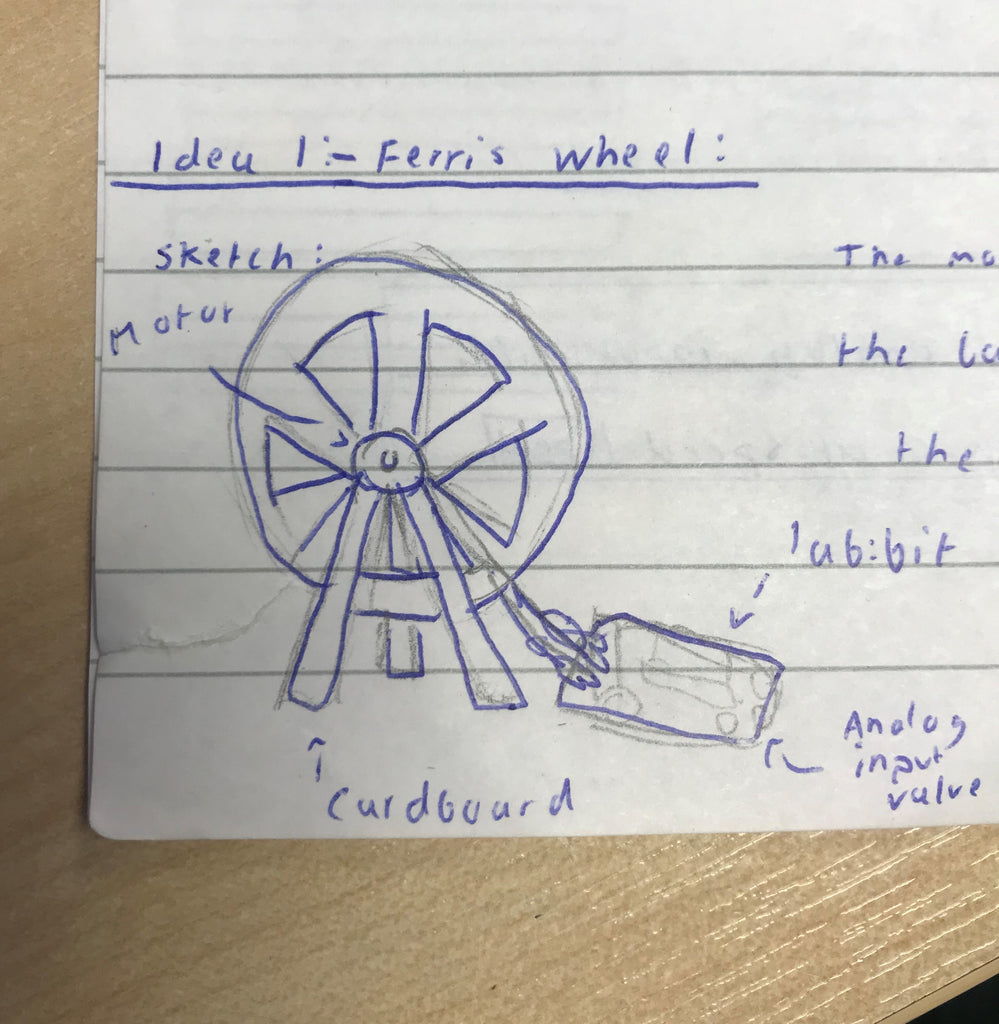 Idea 1:- Ferris wheel:
Sketch:
Motor
The
the
the
lab:bit
Analog
input
valve
Cardboard